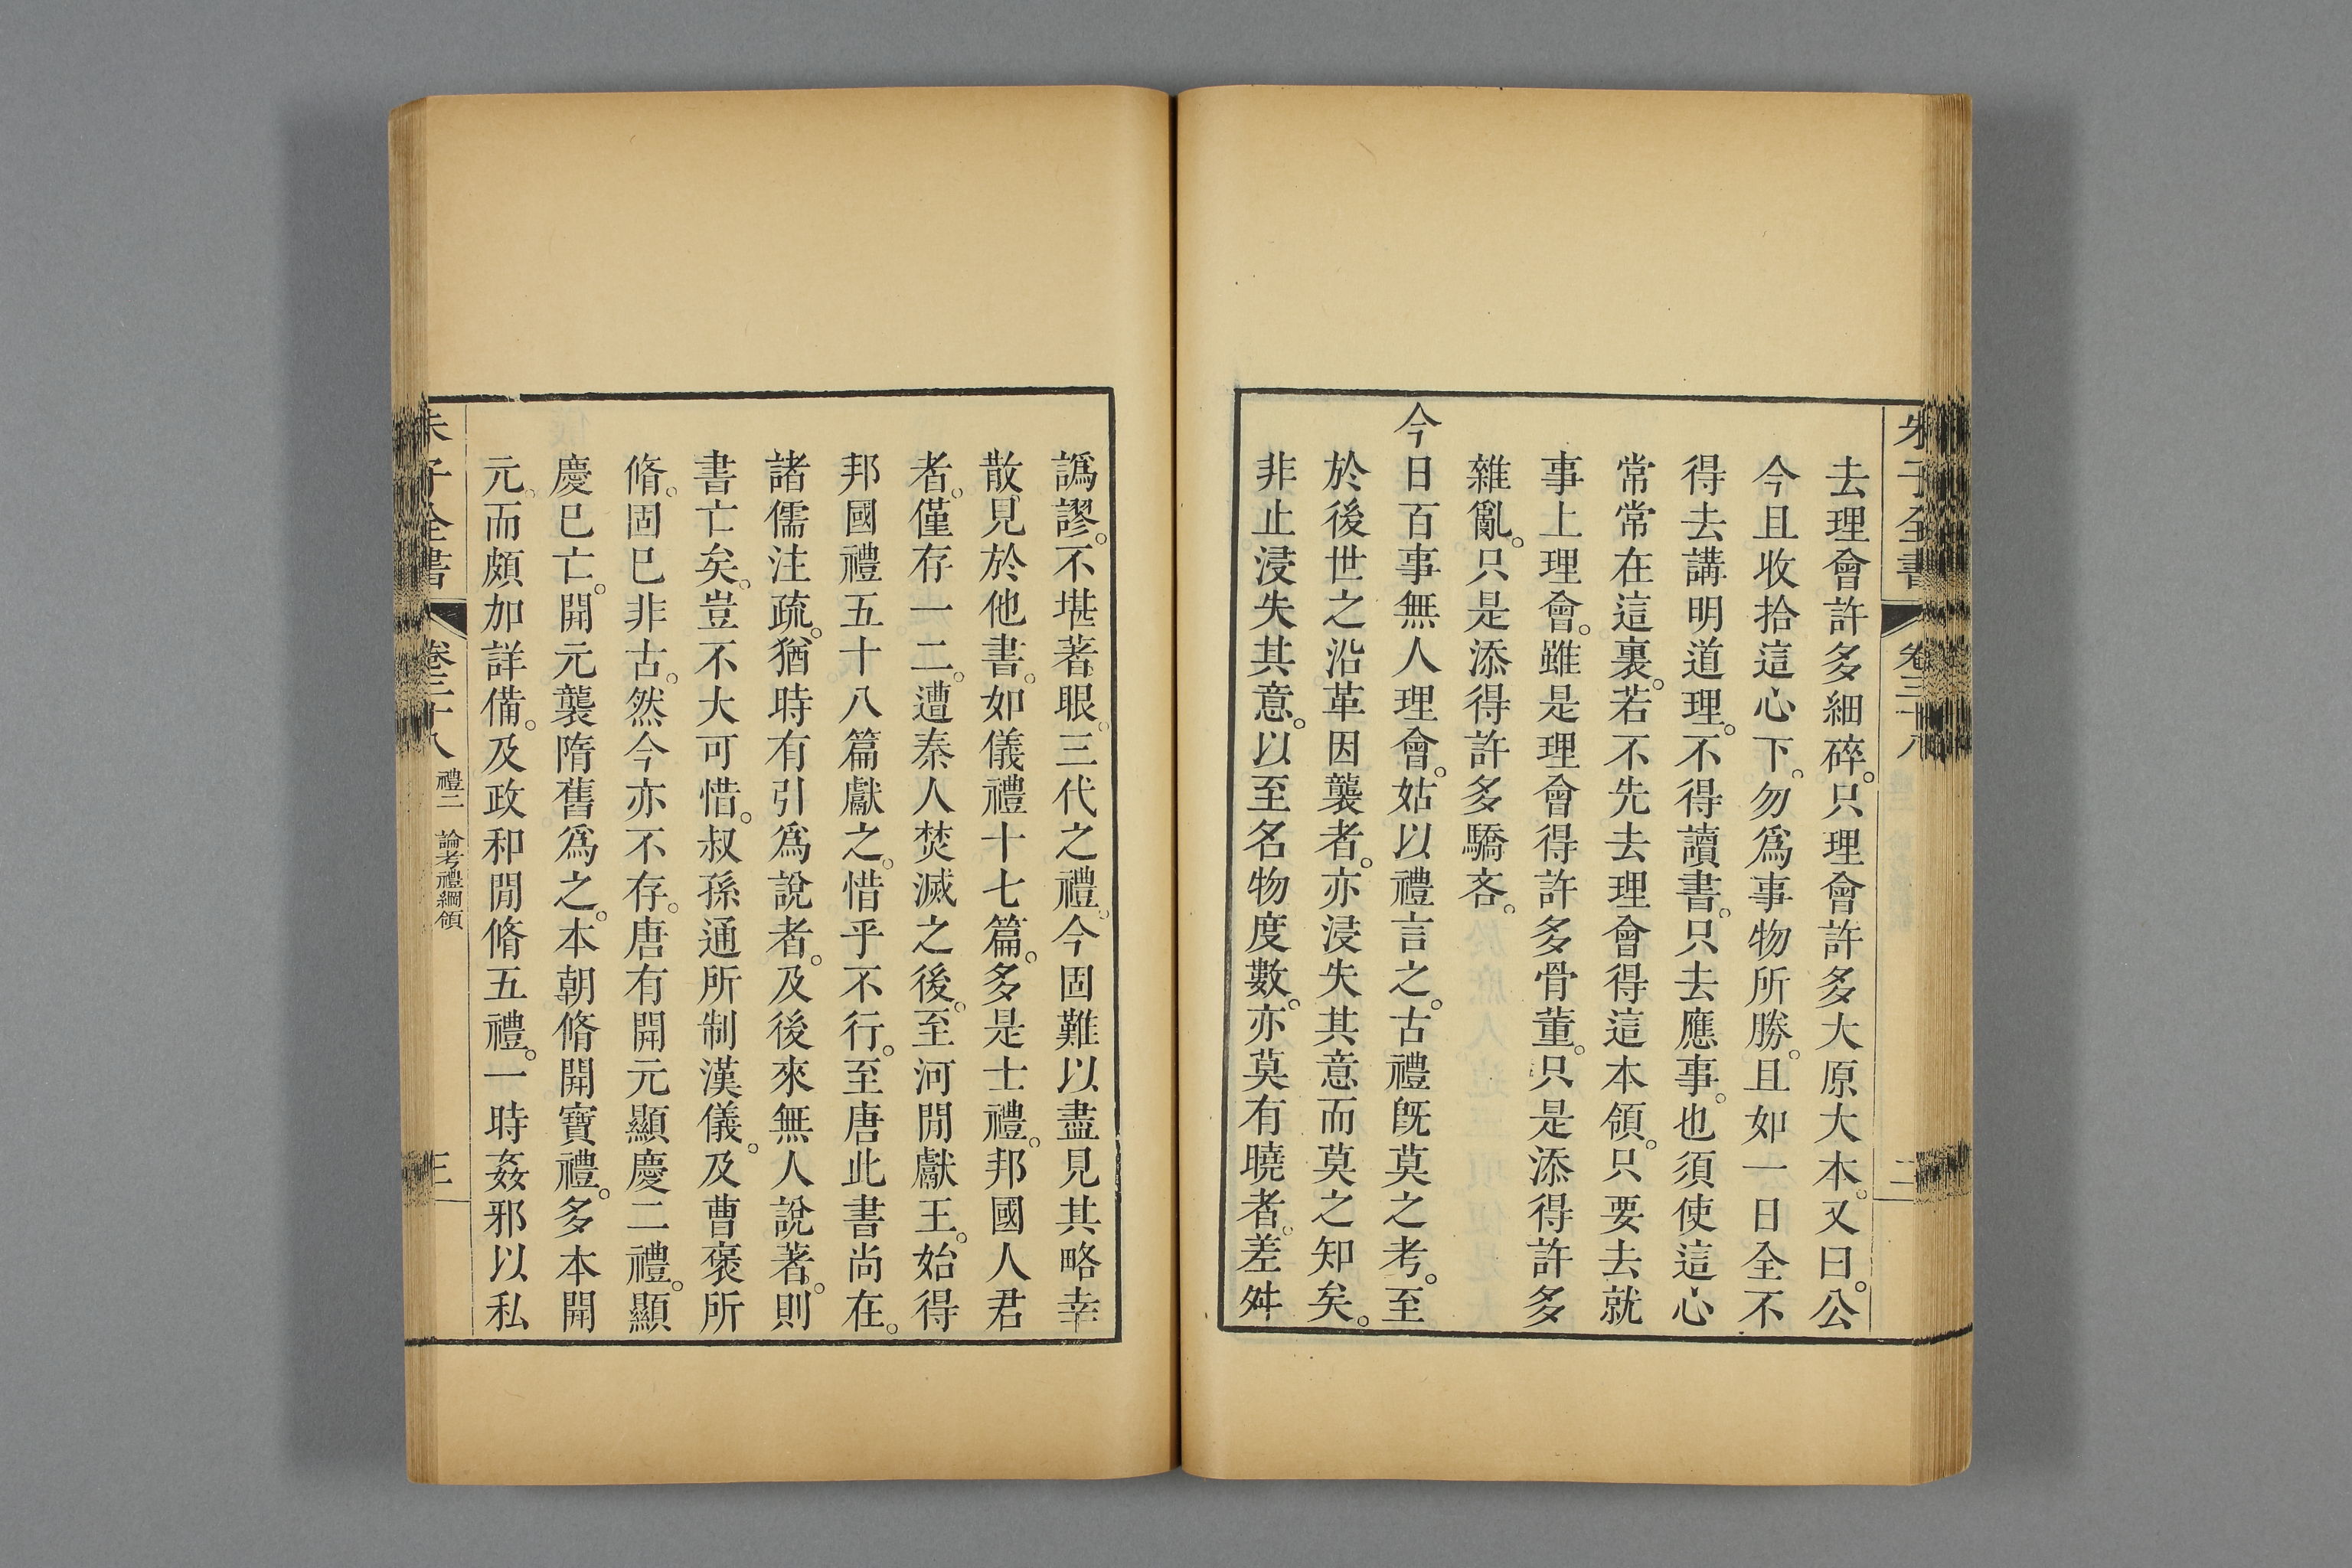 朱子全書 卷三十八 二
去理會許多細碎。只理會許多大原大本。又曰。公
今且收拾這心下。勿爲事物所勝。且如一日全不
得去講明道理。不得讀書。只去應事。也須使這心
常常在這裏。若不先去理會得這本領。只要去就
事上理會。雖是理會得許多骨董。只是添得許多
雜亂。只是添得許多驕吝。
今日百事無人理會。姑以禮言之。古禮旣莫之考。至
於後世之沿革因襲者。亦浸失其意而莫之知矣。
非止浸失其意。以至名物度數。亦莫有曉者。差舛
譌謬。不堪著眼。三代之禮。今固難以盡見其略幸
散見於他書。如儀禮十七篇。多是士禮。邦國人君
者。僅存一二。遭秦人焚滅之後。至河閒獻王。始得
邦國禮五十八篇獻之。惜乎不行。至唐此書尚在。
諸儒注疏。猶時有引爲說者。及後來無人說著。則
書亡矣。豈不大可惜。叔孫通所制漢儀。及曹褒所
脩。固已非古。然今亦不存。唐有開元顯慶二禮。顯
慶已亡。開元襲隋舊爲之。本朝脩開寶禮。多本開
元。而頗加詳備。及政和閒脩五禮。一時姦邪以私
朱子全書 卷三十八 禮二 論考禮綱領 三